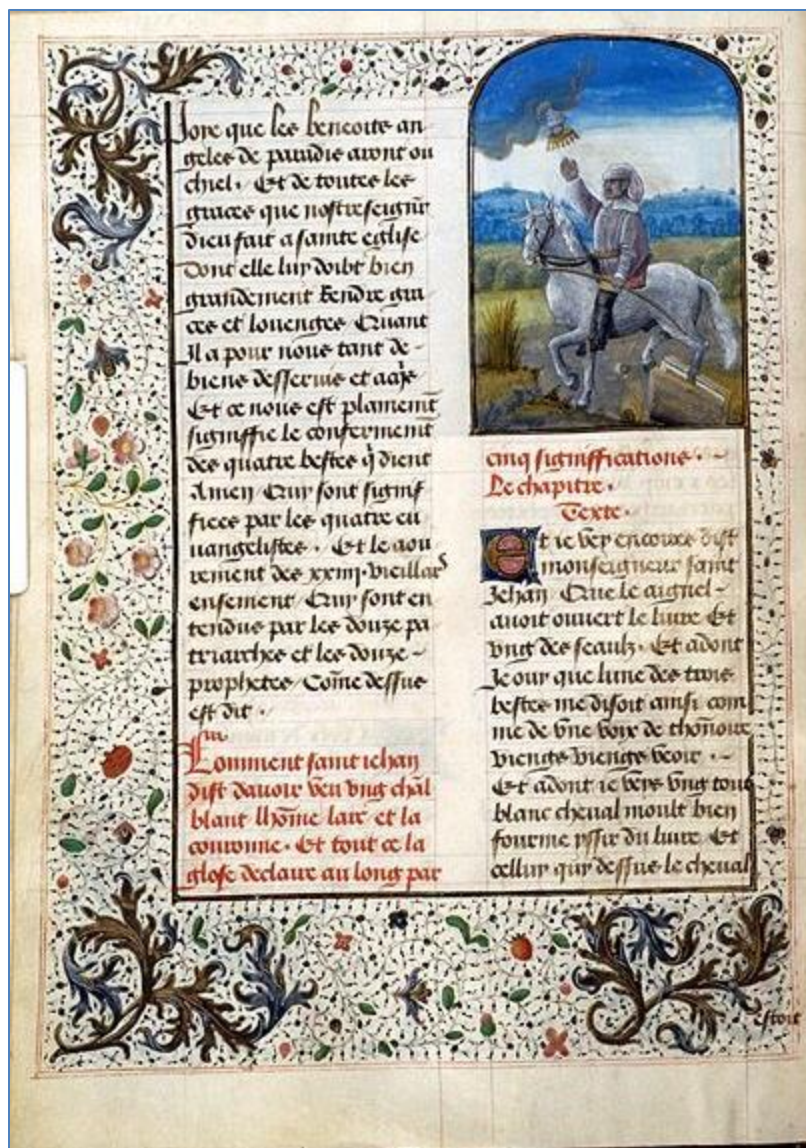 Jore que les benoite an
geles de paradis aront ou
chiel. Et de toutes les
graces que nostre seignr
dieu fait a sainte eglise
Dont elle luy doibt bien
grandement Rendre gra
ces et louenges Quant
Il a pour nous tant de
biens desservie et
Et ce nous est plainemt
signiffie le confermemt
des quatre bestes q̃ dient
Amen Quy sont signif
fiees par les quatre eu
uangelistes. Et le aou
rement des xxiiij. vieillars
ensement Quy sont en
tendus par les douze pa
triarches et les douze
prophetes Come dessus
est dit.
Comment saint iehan
dist davoir veu ung chl̃al
blanc lhom̃e larc et la
couronne. Et tout ce la
glose declaire au long par
cinq signiffications.
Le chapitre.
Texte.
Et ie vey encores dist
monseigneur saint
Jehan Que le aignel
auoit ouuert le liure Et
ung des seaulz. Et adont
Je ouy que lune des trois
bestes me disoit ainsi com
me de vne voix de thoñoire
vienge vienge veoir.
Et adont ie veys ung tout
blanc cheual moult bien
fourme yssir du liure Et
celluy quy dessus le cheual
estoit